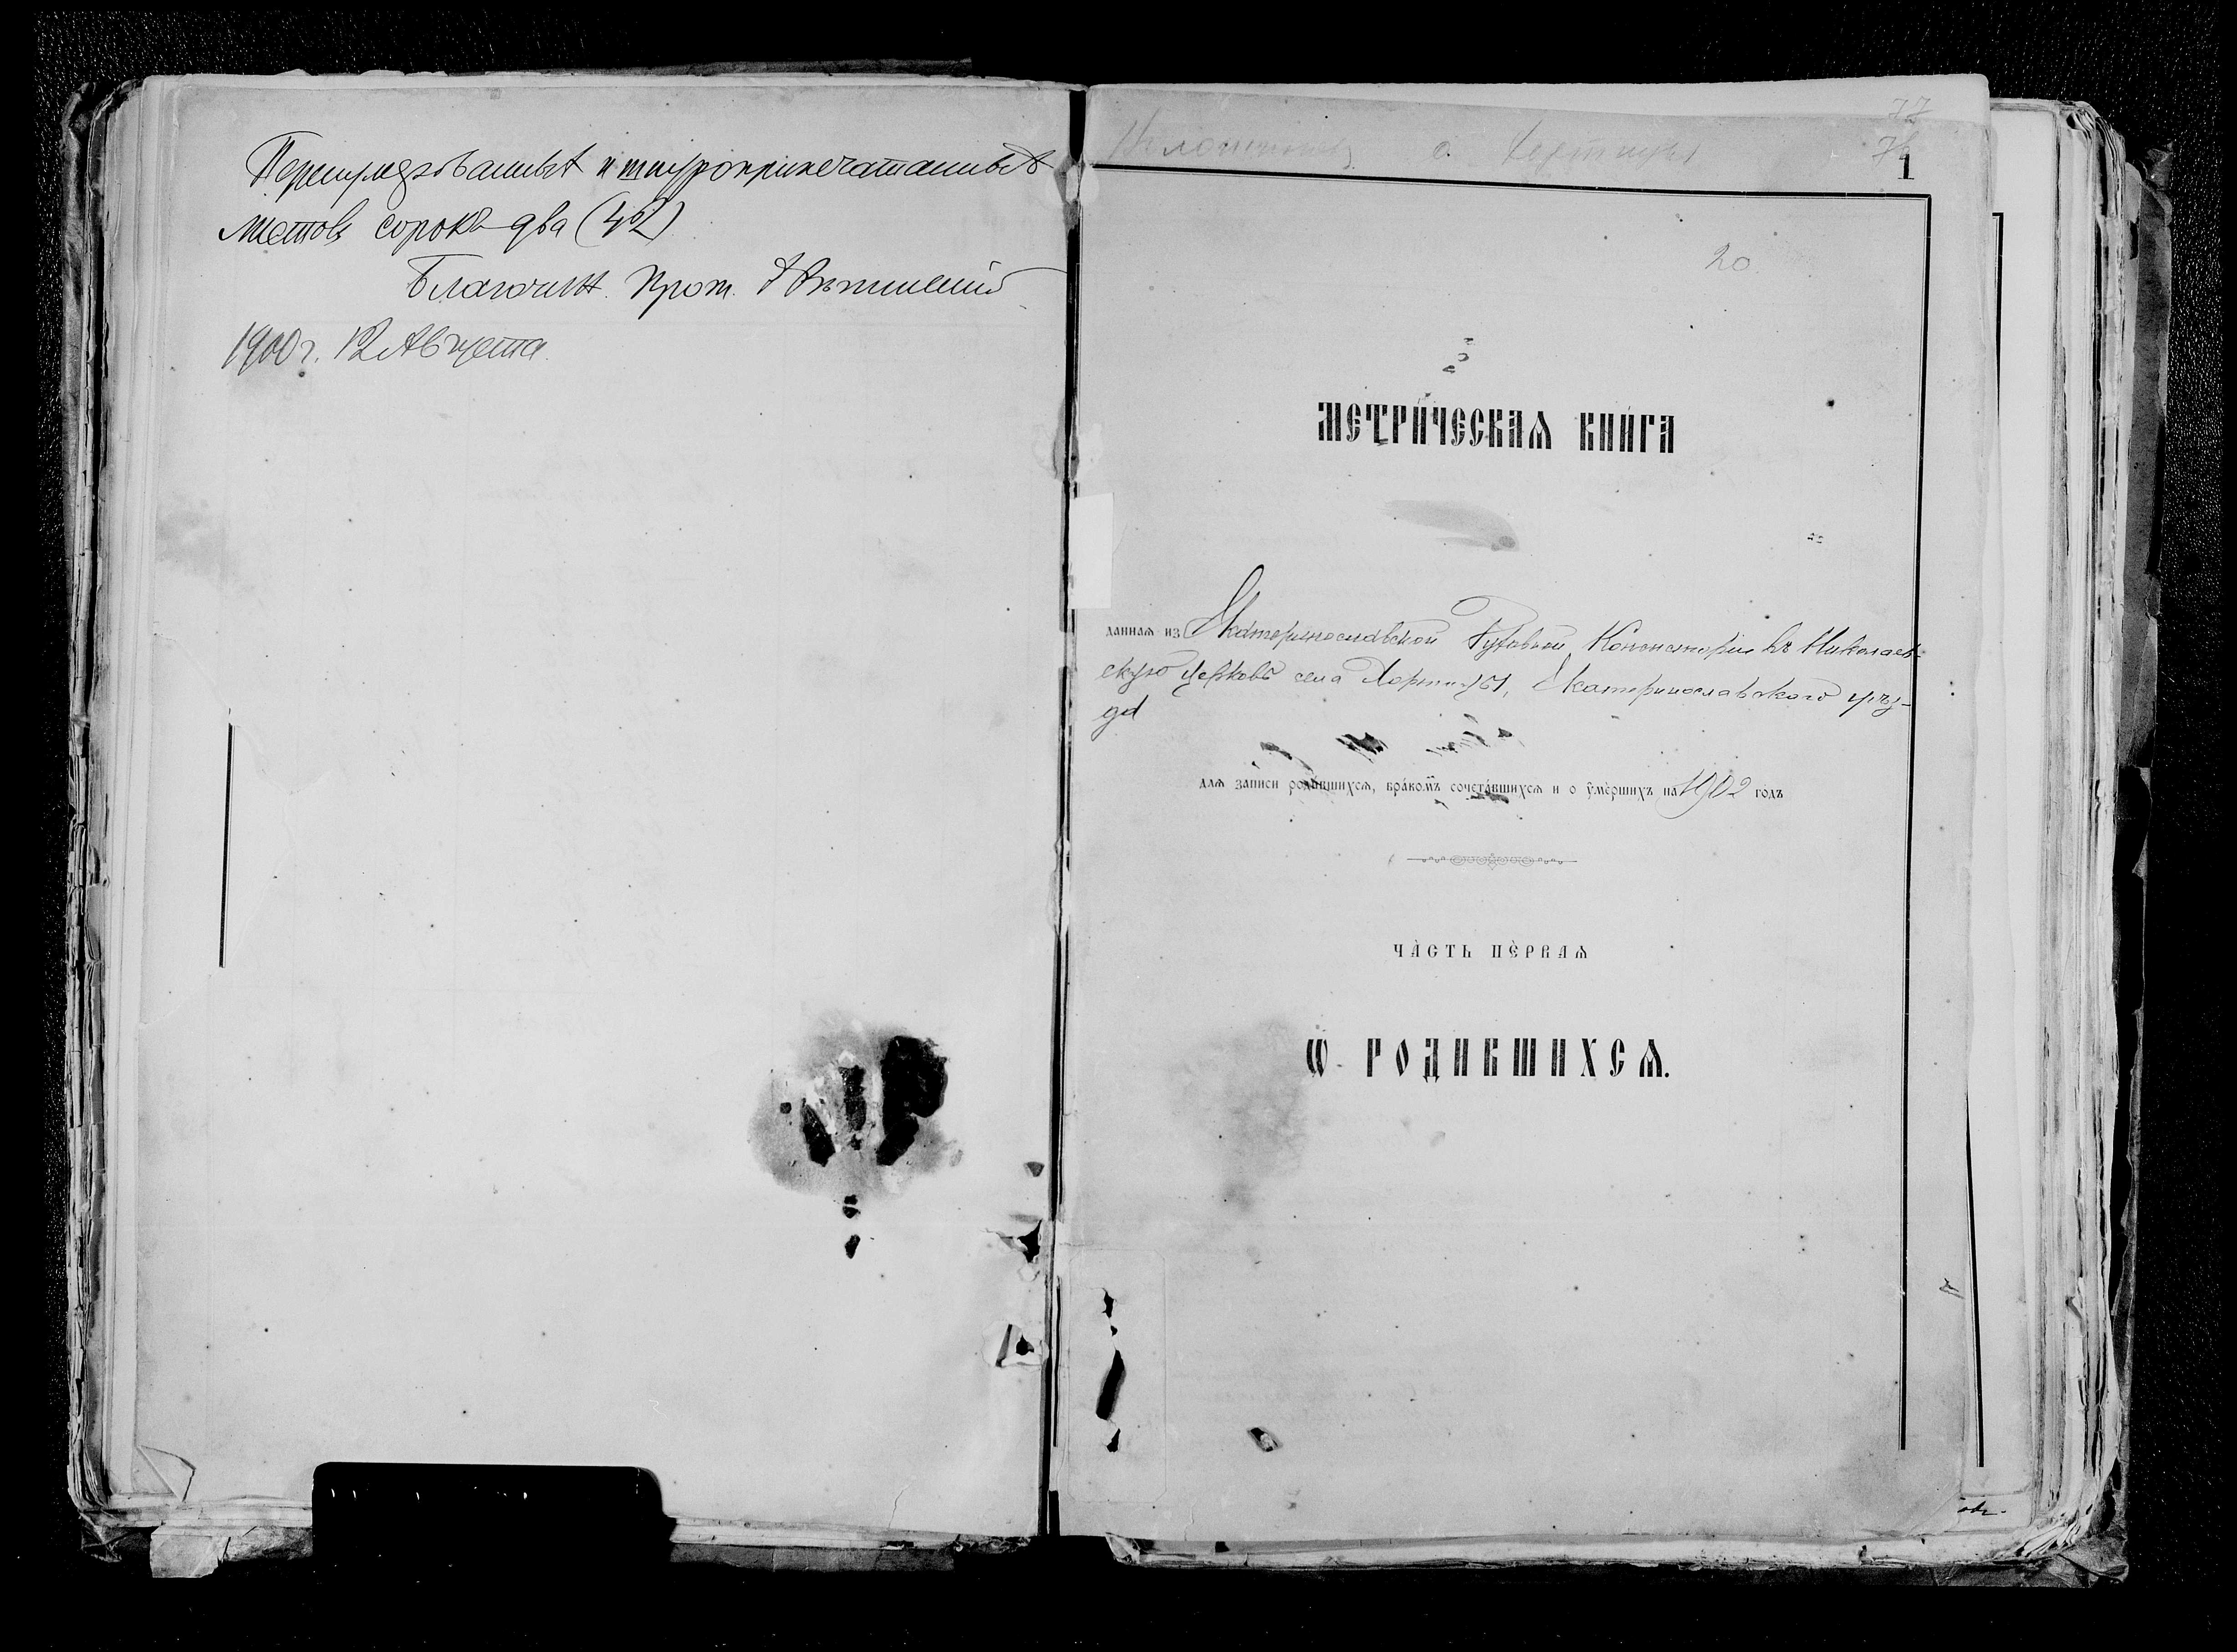 Перенумерованныхъ и шнуроприпечатанныхъ
листовъ сорокъ два (42)
Благочин. Прот.
1900 г. 12 Августа.
77
76
с. Хортицы
1
20
МЕТРИ́ЧЕСКАѦ КНИ́ГА
даннаѧ из Екатеринославской Духовной Консисторіи въ Николаев-
скую церковь села Хортицы, Екатеринославского уѣз-
да
длѧ записи роди́вшихсѧ, бра́комъ сочета́вшихсѧ и о ᲂу҆ме́ршихъ на 1902 го́дъ
ЧА́СТЬ ПЕ́РВАѦ
Ѡ РОДИВШИХСѦ.